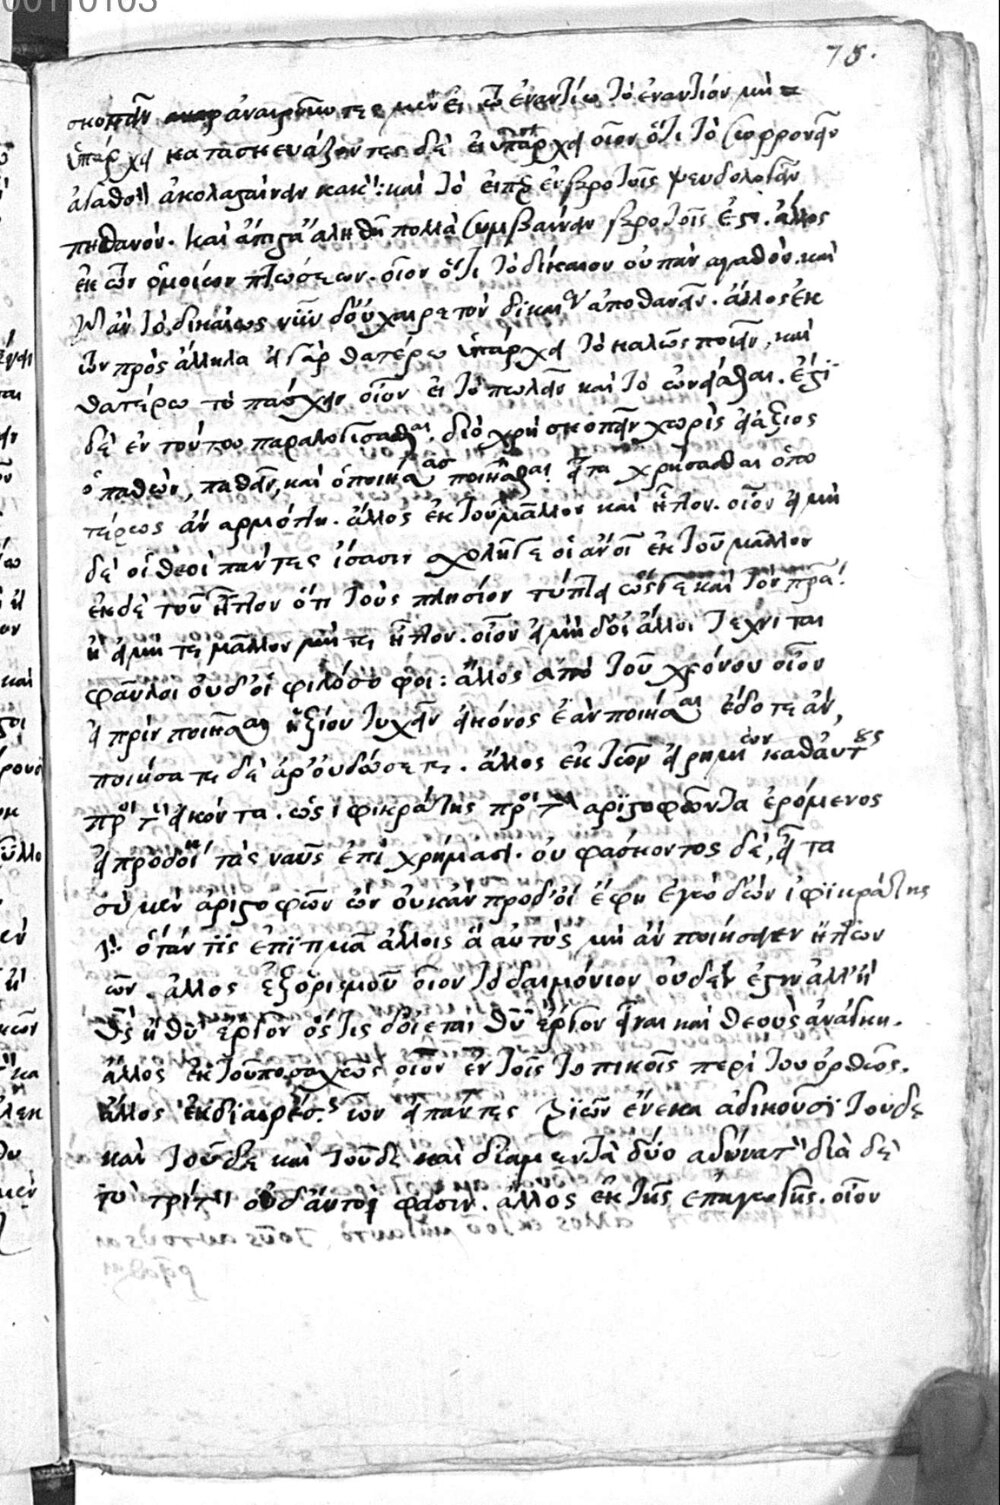 00110103
78.
σκοπεῖν ἀναιροῦντες μὲν εἰ τῷ ἐναντίῳ τὸ ἐναντίον μὴ
ὑπάρχει κατασκευάζοντες δὲ εἰ ὑπάρχει οἷον ὅτι τὸ σωφρονεῖν
ἀγαθὸν ἀκολασταίνειν κακόν: καὶ τὸ εἴπερ ἐν βροτοῖς ψευδολογεῖν
πηθανόν. καὶ ἄπιστα ἀληθῆ πολλὰ συμβαίνειν βροτοῖς ἐστι. ἄλλος
ἐκ τῶν ὁμοίων πτώσεων. οἷον ὅτι τὸ δίκαιον οὐ πᾶν ἀγαθόν. καὶ
γὰρ ἂν τὸ δικαίως νῦν δ' οὐχ αἱρετὸν δικαίως ἀποθανεῖν. ἄλλος ἐκ
τῶν πρὸς ἄλληλα εἰ γὰρ θατέρῳ ὑπάρχει τὸ καλῶς ποιεῖν, καὶ
θατέρῳ τὸ πάσχειν οἷον εἰ τὸ πωλεῖν καὶ τὸ ὠνεῖσθαι. ἔστι
δὲ ἐν τούτου παραλογίσασθαι. διὸ χρὴ σκοπεῖν χωρὶς εἰ ἄξιος
ὁ παθὼν, παθεῖν, καὶ ὁ ποιήσας ποιῆσαι εἶτα χρήσασθαι ὁπο
τέρως ἂν ἁρμόττῃ. ἄλλος ἐκ τοῦ μᾶλλον καὶ ἧττον. οἷον εἰ μὴ
δὲ οἱ θεοὶ πάντες ἴσασιν σχολῇ γε οἱ ἄνοι ἐκ τοῦ μᾶλλον
ἐκ δὲ τοῦ ἧττον ὅτι τοὺς πλησίον τύπτει ὥστε καὶ τὸν πρα
ἢ εἰ μή τε μᾶλλον μήτε ἧττον. οἷον εἰ μὴ δ' οἱ ἄλλοι τεχνῖται
φαῦλοι οὐδ' οἱ φιλόσοφοι: ἄλλος ἀπὸ τοῦ χρόνου οἷον
εἰ πρὶν ποιῆσαι ἠξίουν τυχεῖν εἰκόνος ἐὰν ποιήσαι ἔδοτε ἄν,
ποιήσαντι δὲ ἆρ' οὐ δώσετε. ἄλλος ἐκ τῶν εἰρημένων καθ' αὑτοὺς
πρὸς τὸν εἰπόντα. ὡς ἰφικράτης πρὸς τὸν ἀριστοφῶντα ἐρόμενος
εἰ προδοίη τὰς ναῦς ἐπὶ χρήμασι. οὐ φάσκοντος δὲ, εἶτα
σὺ μὲν ἀριστοφῶν ὢν οὐκ ἂν προδοίης ἔφη ἐγὼ δ' ὢν ἰφικράτης
ὅταν τις ἐπιτιμᾷ ἄλλοις ἃ αὐτὸς μὴ ἂν ποιήσειεν ἥττων
ὤν. ἄλλος ἐξ ὁρισμοῦ οἷον τὸ δαιμόνιον οὐδέν ἐστιν ἀλλ' ἢ
θς ἢ θῦ ἔργον ὅστις δ' οἴεται θῦ ἔργον εἶναι καὶ θεοὺς ἀνάγκη.
ἄλλος ἐκ τοῦ ποσαχῶς οἷον ἐν τοῖς τοπικοῖς περὶ τοῦ ὀρθῶς.
ἄλλος ἐκ διαιρέσεως τῶν εἰ πάντες τριῶν ἕνεκα ἀδικοῦσι τοῦδε
καὶ τοῦδε καὶ τοῦδε καὶ διὰ μὲν τὰ δύο ἀδύνατον διὰ δὲ
τὸ τρίτον οὐδ' αὐτοί φασιν. ἄλλος ἐκ τῆς ἐπαγωγῆς. οἷον